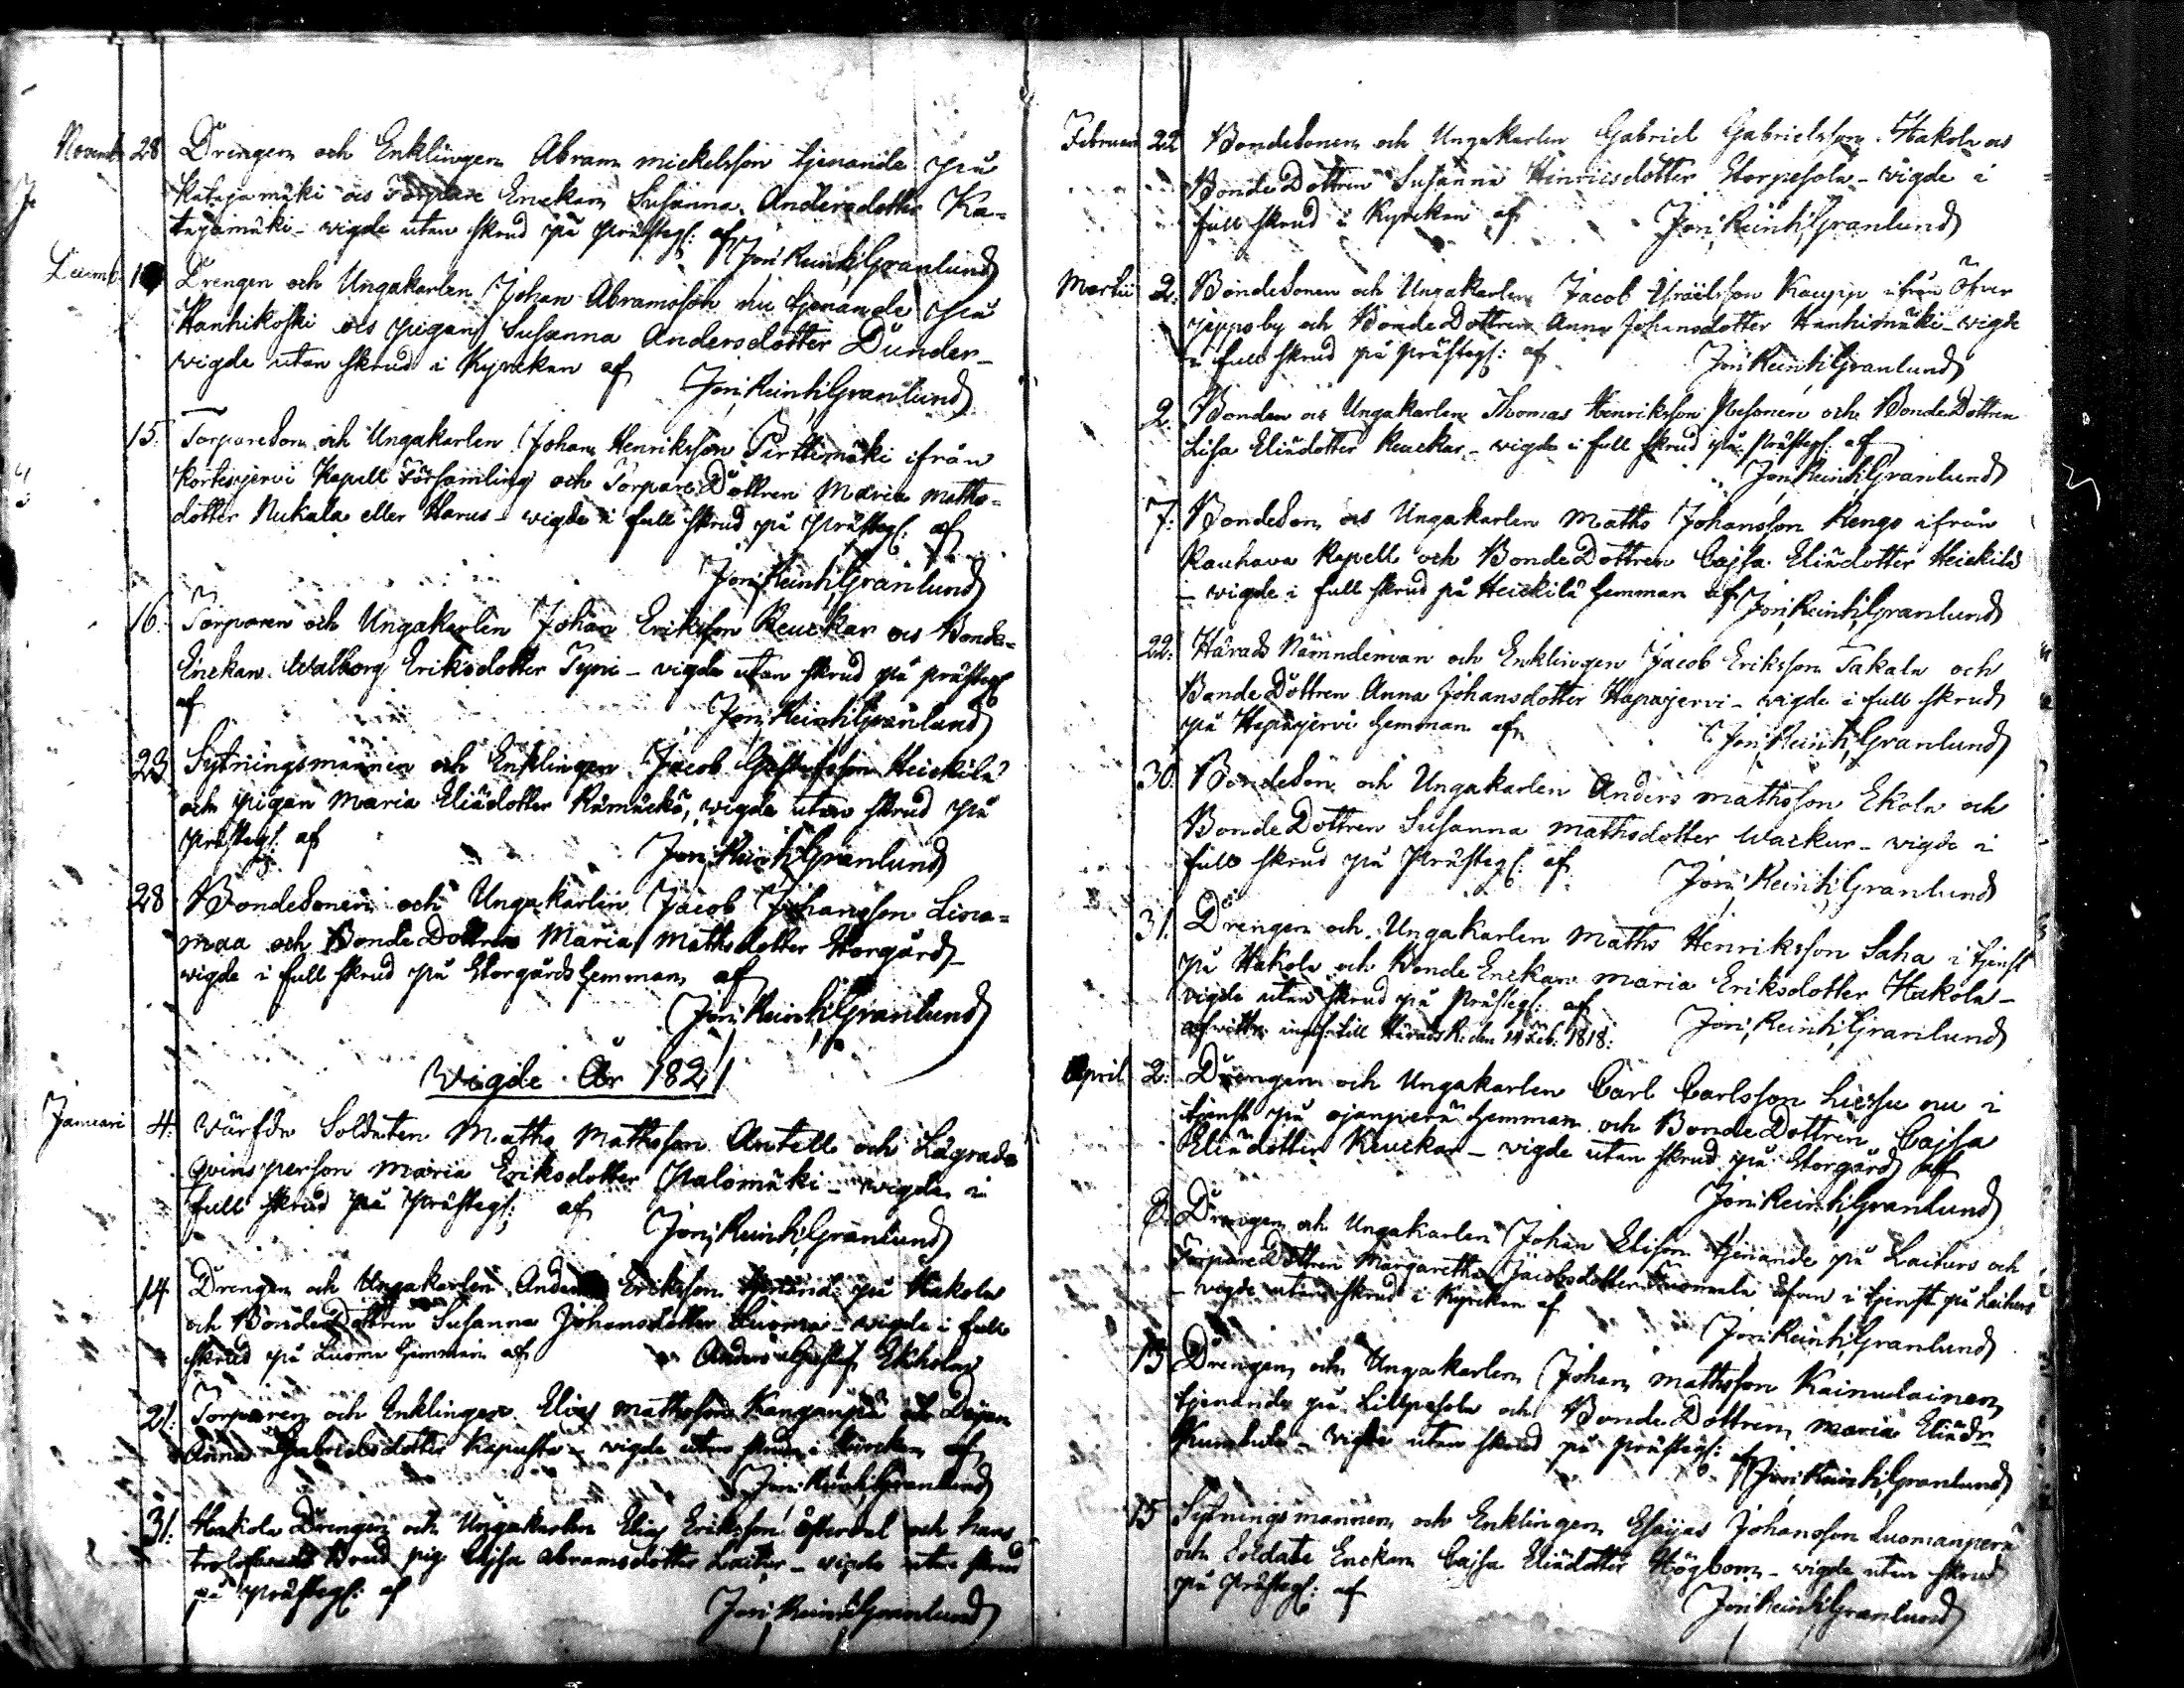 Novemb. 28 Drengen och Enklingen Abram mickelsson tjenande på
Katajamäki ocs Torpare Enckan Susanna Andersdotter Ka-
tajamäki - vigde utan skrud på Prästeg: af
Jon: Reinh: Granlund
Decemb. Drengen och Ungakarlen Johan Abramsson nu tjenande på
Hanhikoski ocs pigan Susanna Andersdotter Dunder -
vigde utan skrud i Kyrckan af
Jon: Reinh: Granlund
15. TorpareSon och Ungakarlen Johan Henriksson Pirttimäki ifrån
Kortesjervi Kapell Församling och TorpareDottren Maria Maths-
dotter Nukala eller Harus - vigde i full skrud på Prästeg: af
Jon: Reinh: Granlund
16. Torparen och Ungakarlen Johan Eriksson Keuckar ocs Bonde-
Enckan Walborg Eriksdotter Tyni - vigde utan skrud på Prästeg
af
Jon: Reinh: Granlund
23 Sytningsmannen och Enklingen Jacob Gustafsson Heickilä
och pigan Maria Eliädotter Rämäckö, vigde utan skrud på
Prästeg: af
Jon: Reinh: Granlund
28 BondeSonen och Ungakarlen Jacob Johansson Liina-
maa och BondeDottren Maria Mathsdotter Storgård -
vigde i full skrud på Storgårds Hemman af
Jon: Reinh: Granlund
Vigde År 1821
Januari 4. Värfda Soldaten Maths Mathsson Antell och Lägrade
qvinsperson Maria Eriksdotter Palomäki - vigde i
full skrud på Prästeg: af
Jon: Reinh: Granlund
14 Drengen och Ungakarlen Anders Eriksson tjenand: på Hakola
och BondeDottren Susanna Johansdotter Luoma - vigde i full
skrud på Luoma Hemman af Anders Gustaf Ekholm
21: Torparen och Enklingen Elias Mathsson Kanganpä och Dejan
Anna Gabrielsdotter Kapusta - vigde utan skrud i Kyrckan af
Jon: Reinh: Granlund
31: Hakola Drengen och Ungakarlen Elias Eriksson Österval och hans
trolofvade Brud pig: Cajsa Abramsdotter Laitur - vigde utan skrud
på Prästeg: af
Jon: Reinh: Granlund
Februari 22 BondeSonen och Ungakarlen Gabriel Gabrielsson Hakola ocs
BondeDottren Susanna Hinricsdotter Storpesola - vigde i
full skrud i Kyrckan af
Jon: Reinh: Granlund
Martii 2. BondeSonen och Ungakarlen Jacob Israelsson Kaupp ifrån Öfver
Jeppoby och BondeDottren Anna Johansdotter Hanhimäki - vigde
i full skrud på Prästeg: af
Jon: Reinh: Granlund
2. Bonden ocs Ungakarlen Thomas Henriksson Pesonen och BondeDottren
Lisa Eliädotter Keuckar - vigde i full skrud på Prästeg: af
Jon: Reinh: Granlund
7: BondeSon ocs Ungakarlen Maths Johansson Rengo ifrån
Kauhava Kapell och BondeDottren Cajsa Eliädotter Heickilä
- vigde i full skrud på Heickilä Hemman af Jon: Reinh: Granlund
22: Härads Nämndeman och Enklingen Jacob Eriksson Takala och
BondeDottren Anna Johansdotter Hapajervi - vigde i full skrud
på Hapajervi Hemman af
Jon: Reinh: Granlund
30 BondeSon och Ungakarlen Anders Mathsson Ekola och
BondeDottren Susanna Mathsdotter Wackur - vigde i
full skrud på Prästeg: af
Jon: Reinh: Granlund
31. Drengen och Ungakarlen Maths Henriksson Saha i tjenst
på Hakola och Bonde Enckan Maria Eriksdotter Hakola -
vigde utan skrud på Prästeg: af
till HäradsR: den 14 Feb: 1818: Jon: Reinh: Granlund
April 2: Drengen och Ungakarlen Carl Carlsson Liessu nu i
tjenst på Ojanperä Hemman och BondeDottren Cajsa
Eliädotter Keuckar - vigde utan skrud på Storgård af
Jon: Reinh: Granlund
8. Drengen och Ungakarlen Johan Elisson tjenande på Laiturs och
TorpareDottren Margaretha Jacobsdotter Tuomala äfven i tjenst på Laiturs
- vigde utan skrud i Kyrckan af
Jon: Reinh: Granlund
13 Drengen och Ungakarlen Johan Mathsson Kainulainen
tjenande på Lillpesola och BondeDottren Maria Eliädr
vigde utan skrud på Prästeg: af
Jon: Reinh: Granlund
15 Sytningsmannen och Enklingen Esaijas Johansson Luomanperä
och Soldate Enckan Caisa Eliädotter Högbom - vigde utan skrud
på Prästeg: af
Jon: Reinh: Granlund